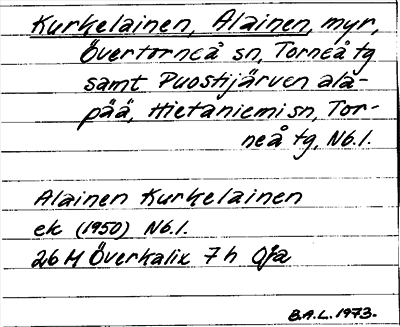 Kurkelainen, Alainen, myr,
Övertorneå sn, Torneå tg
samt Puostijärven ala-
pää, Hietaniemi sn, Tor-
neå tg, Nb.l.
Alainen Kurkelainen
ek (1950) Nb.l.
26 M Överkalix 7 h Oja
B.A.L. 1973.